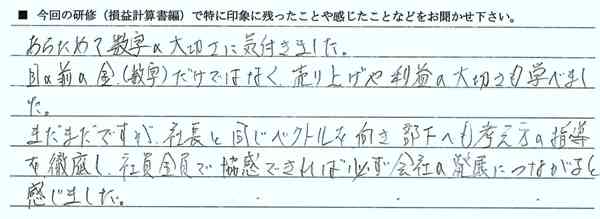 ■ 今回の研修（損益計算書編）で特に印象に残ったことや感じたことなどをお聞かせ下さい。
あらためて数字の大切さに気付きました。
目の前の金（数字）だけではなく、売り上げや利益の大切さも学べまし
た。
まだまだですが、社長と同じベクトルを向き部下へも考え方の指導
を徹底し、社員全員で協感できれば必ず会社の発展につながると
感じました。